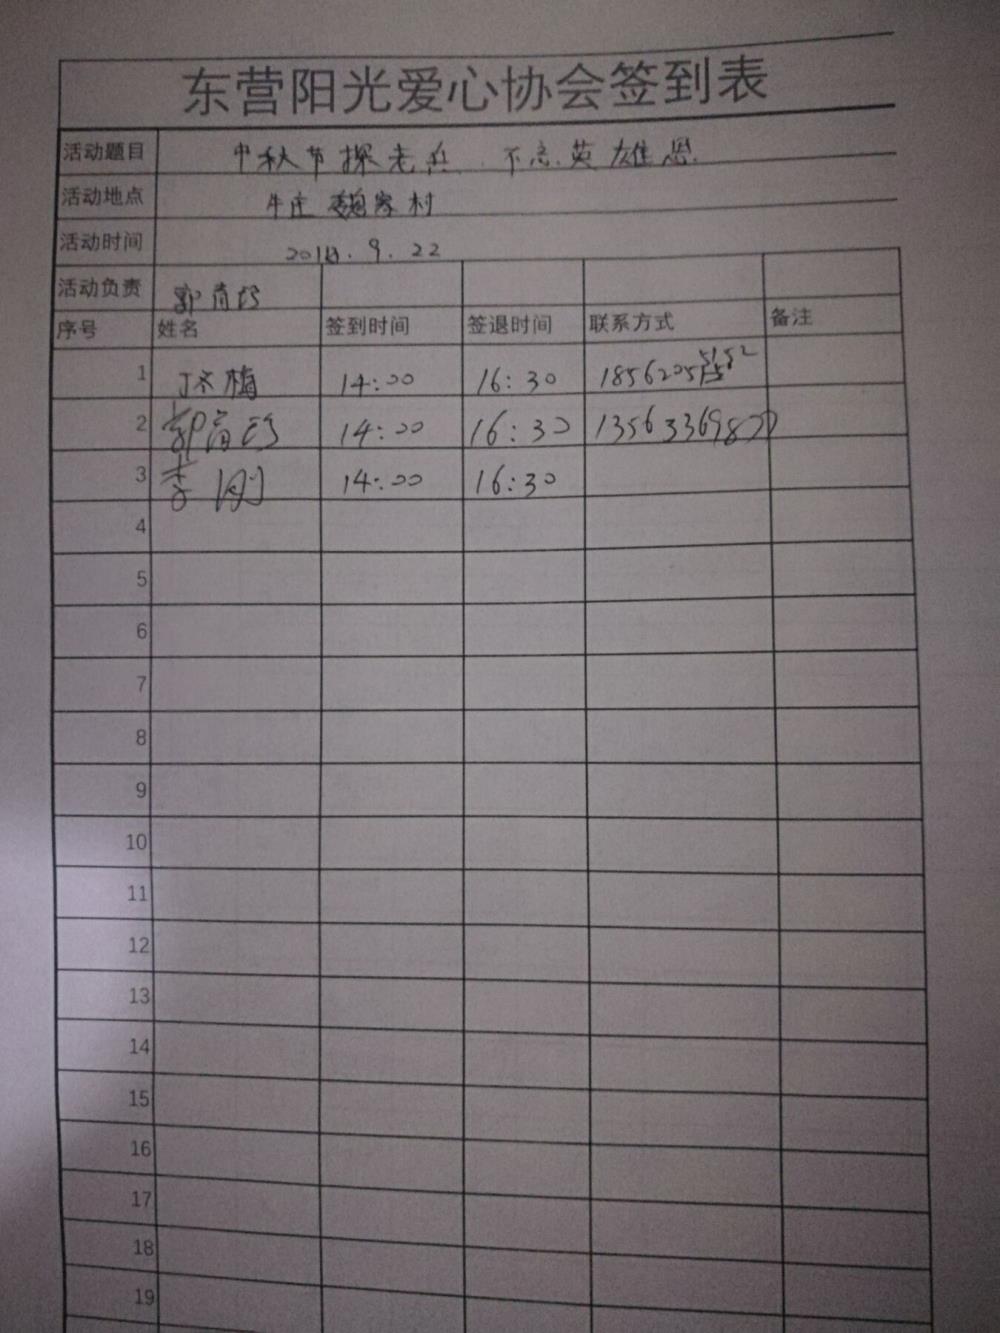 东营阳光爱心协会签到表
活动题目 中秋节探老兵 不忘英雄恩
活动地点 牛庄 魏家村
活动时间 2018.9.22
活动负责 郭
序号 姓名 签到时间 签退时间 联系方式 备注
1 梅 14:00 16:30
2 郭 14:00 16:30
3 李刚 14:00 16:30
4
5
6
7
8
9
10
11
12
13
14
15
16
17
18
19